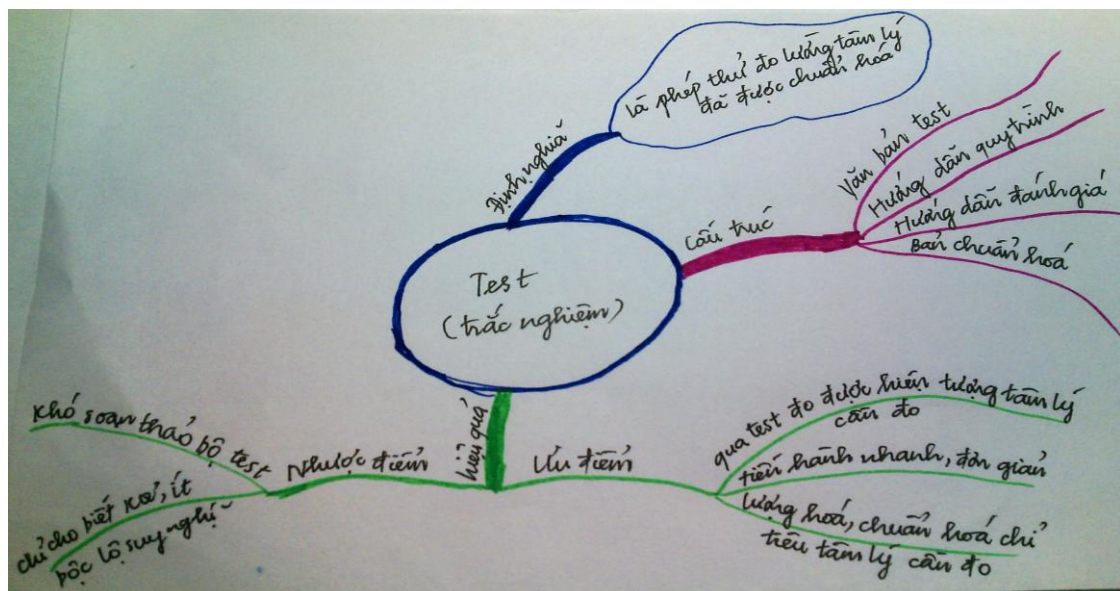 Test
(trắc nghiệm)
Định nghĩa
là phép thử đo lường tâm lý
đã được chuẩn hoá
Cấu trúc
Văn bản test
Hướng dẫn quy trình
Hướng dẫn đánh giá
Bản chuẩn hoá
hiệu quả
Ưu điểm
qua test đo được hiện tượng tâm lý
cần đo
tiến hành nhanh, đơn giản
lượng hoá, chuẩn hoá chỉ
tiêu tâm lý cần đo
Nhược điểm
khó soạn thảo bộ test
chỉ cho biết kq, ít
bộc lộ suy nghĩ